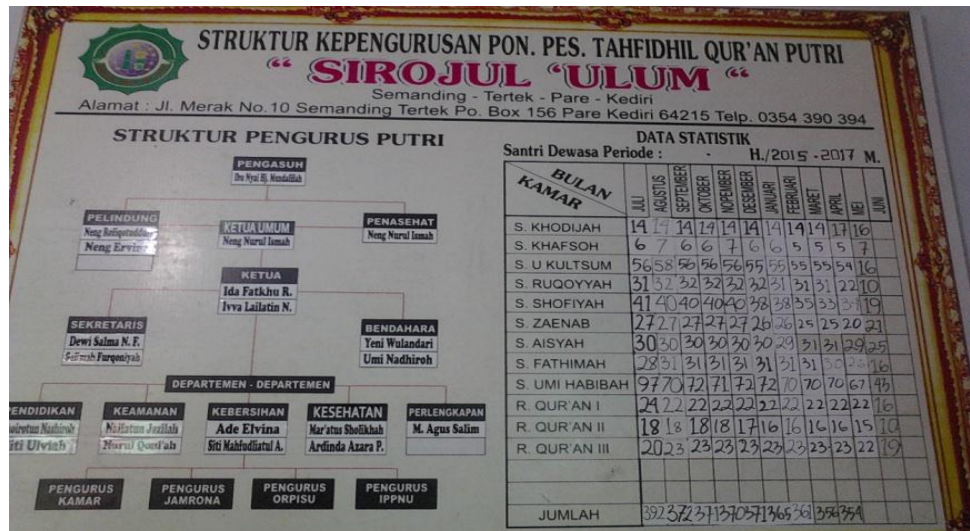 STRUKTUR KEPENGURUSAN PON. PES. TAHFIDHIL QUR'AN PUTRI
“ SIROJUL ‘ULUM “
Semanding - Tertek - Pare - Kediri
Alamat : Jl. Merak No.10 Semanding Tertek Po. Box 156 Pare Kediri 64215 Telp. 0354 390 394
STRUKTUR PENGURUS PUTRI
PENGASUH
Ibu Nyai Hj.
PELINDUNG
Neng
Neng Ervi
KETUA UMUM
Neng Nurul Ismah
PENASEHAT
Neng Nurul Ismah
KETUA
Ida Fatkhu R.
Ivva Lailatin N.
SEKRETARIS
Dewi Salma N. F.
Furqoniyah
BENDAHARA
Yeni Wulandari
Umi Nadhiroh
DEPARTEMEN - DEPARTEMEN
ENDIDIKAN
iti Ulviah
KEAMANAN
Nailatun Jazilah
Nurul Qoni'ah
KEBERSIHAN
Ade Elvina
Siti Mahfudliatul A.
KESEHATAN
Mar'atus Sholikhah
Ardinda Azara P.
PERLENGKAPAN
M. Agus Salim
PENGURUS KAMAR
PENGURUS JAMRONA
PENGURUS ORPISU
PENGURUS IPPNU
DATA STATISTIK
Santri Dewasa Periode : - H./2015 - 2017 M.
BULAN KAMAR JULI AGUSTUS SEPTEMBER OKTOBER NOPEMBER DESEMBER JANUARI FEBRUARI MARET APRIL MEI JUNI
S. KHODIJAH 14 14 14 14 14 14 14 14 14 17 16
S. KHAFSOH 6 7 6 6 7 6 6 5 5 5 7
S. U KULTSUM 56 58 56 56 56 55 55 55 55 54 16
S. RUQOYYAH 31 32 32 32 32 32 31 31 31 22 10
S. SHOFIYAH 41 40 40 40 40 38 38 35 33 19
S. ZAENAB 27 27 27 27 27 26 26 25 25 20 21
S. AISYAH 30 30 30 30 30 30 29 31 31 29 25
S. FATHIMAH 28 31 31 31 31 31 31 31 16
S. UMI HABIBAH 97 70 72 71 72 72 70 70 70 67 43
R. QUR'AN I 24 22 22 22 22 22 22 22 22 22 16
R. QUR'AN II 18 18 18 18 17 16 16 16 16 15 10
R. QUR'AN III 20 23 23 23 23 23 23 23 23 22 19
JUMLAH 392 372 371 370 371 365 361 356 354